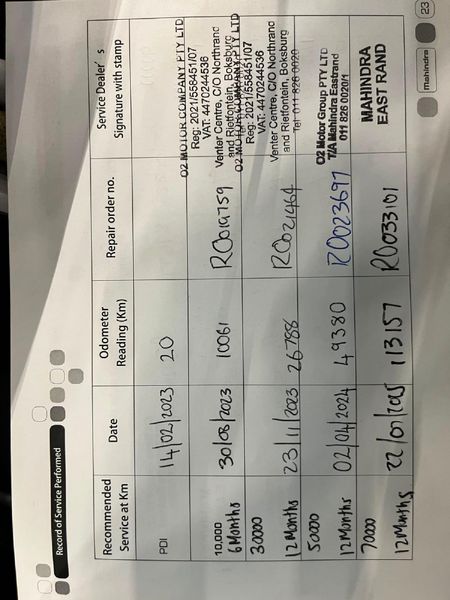 Record of Service Performed
Recommended Service at Km Date Odometer Reading (Km) Repair order no. Service Dealer's Signature with stamp
PDI 14/02/2023 20
O2 MOTOR COMPANY PTY LTD
Reg: 2021/558451/07
VAT: 4470244536
10,000 6 Months 30/08/2023 10061 RO019759
Venter Centre, C/O Northrand
and Rietfontein, Boksburg
O2 MOTOR COMPANY PTY LTD
Reg: 2021/558451/07
VAT: 4470244536
30000 12 Months 23/11/2023 26788 RO021464
Venter Centre, C/O Northrand
and Rietfontein, Boksburg
Tel: 011 826 0020
50000 12 Months 02/04/2024 49380 RO023697
O2 Motor Group PTY LTD
T/A Mahindra Eastrand
011 826 0020/1
70000 12 Months 113157 RO033101
MAHINDRA
EAST RAND
mahindra 23